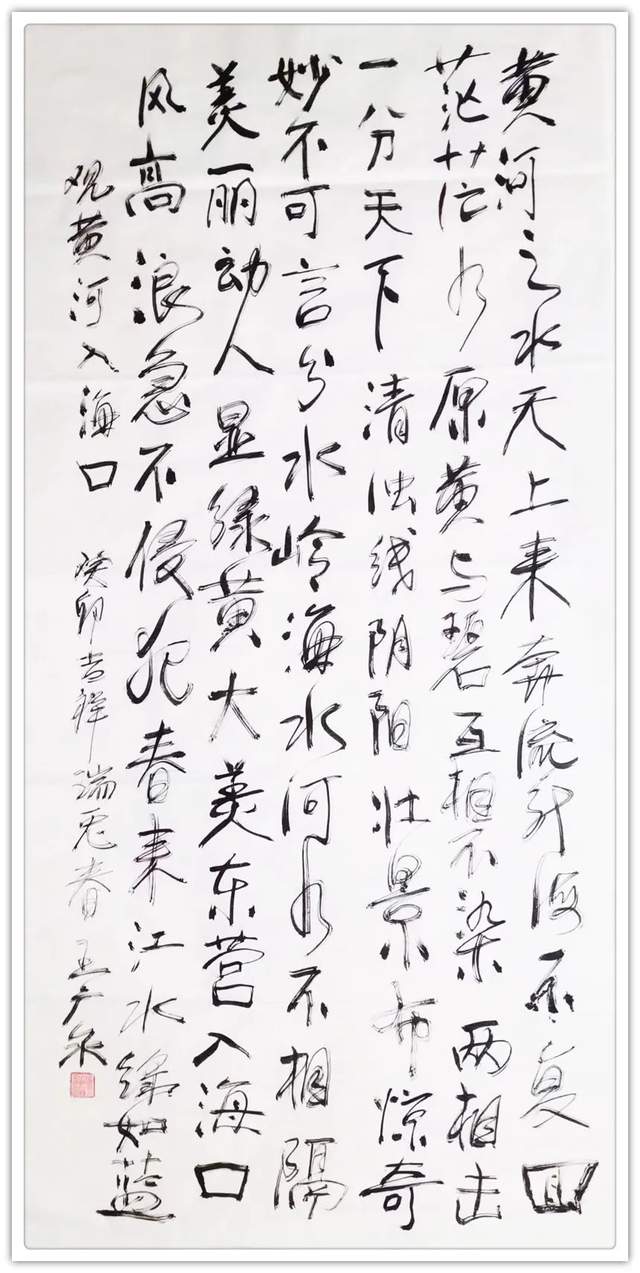 黄河之水天上来奔流到海不复回
茫茫水原黄与碧互相不染两相击
一分天下清浊线阴阳壮景布惊奇
妙不可言分水岭海水河水不相隔
美丽动人显绿黄大美东营入海口
风高浪急不侵犯春来江水绿如蓝
观黄河入海口 癸卯吉祥瑞兔春 王广